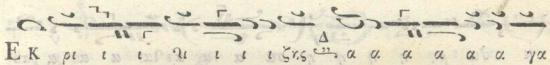 Εκ ρι ι ι ι ι ι ζης α α α α α α α γα